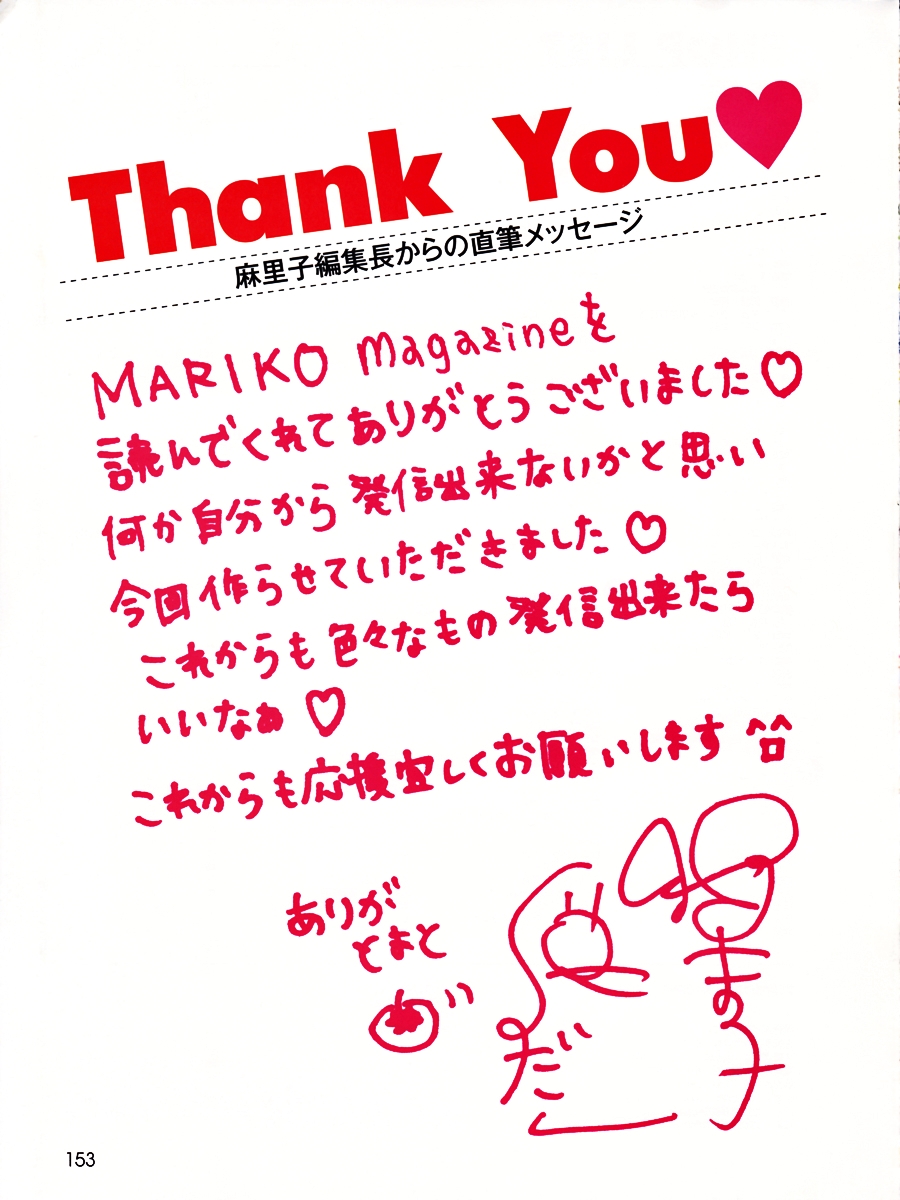 Thank You♥
麻里子編集長からの直筆メッセージ
MARIKO magazineを
読んでくれてありがとうございました♡
何か自分から発信出来ないかと思い
今回作らせていただきました♡
これからも色々なもの発信出来たら
いいなぁ♡
これからも応援宜しくお願いします
ありが
とまと
153